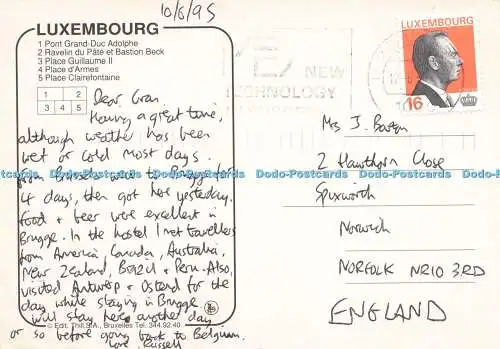 10/8/95
LUXEMBOURG
1 Pont Grand-Duc Adolphe
2 Ravelin du Pâte et Bastion Beck
3 Place Guillaume II
4 Place d'Armes
5 Place Clairefontaine
1 2
3 4 5
Dear Gran,
Having a great time,
although weather has been
wet or cold most days.
From Brussels went to Brugge for
4 days, then got here yesterday.
Food + beer were excellent in
Brugge. In the hostel I met travellers
from America, Canada, Australia,
New Zealand, Brazil + Peru. Also,
visited Antwerp + Ostend for the
day while staying in Brugge.
will stay here another day
or so before going back to Belgium.
Love Russell
© Edit. Thill S.A., Bruxelles Tel. 344.92.40
NEW
TECHNOLOGY
LUXEMBOURG
16
Mrs J.
2 Hawthorn Close
Spixworth
Norwich
NORFOLK NR10 3RD
ENGLAND
Dodo-Postcards Dodo-Postcards Dodo-Postcards Dodo-Postcards Dodo-Postcards